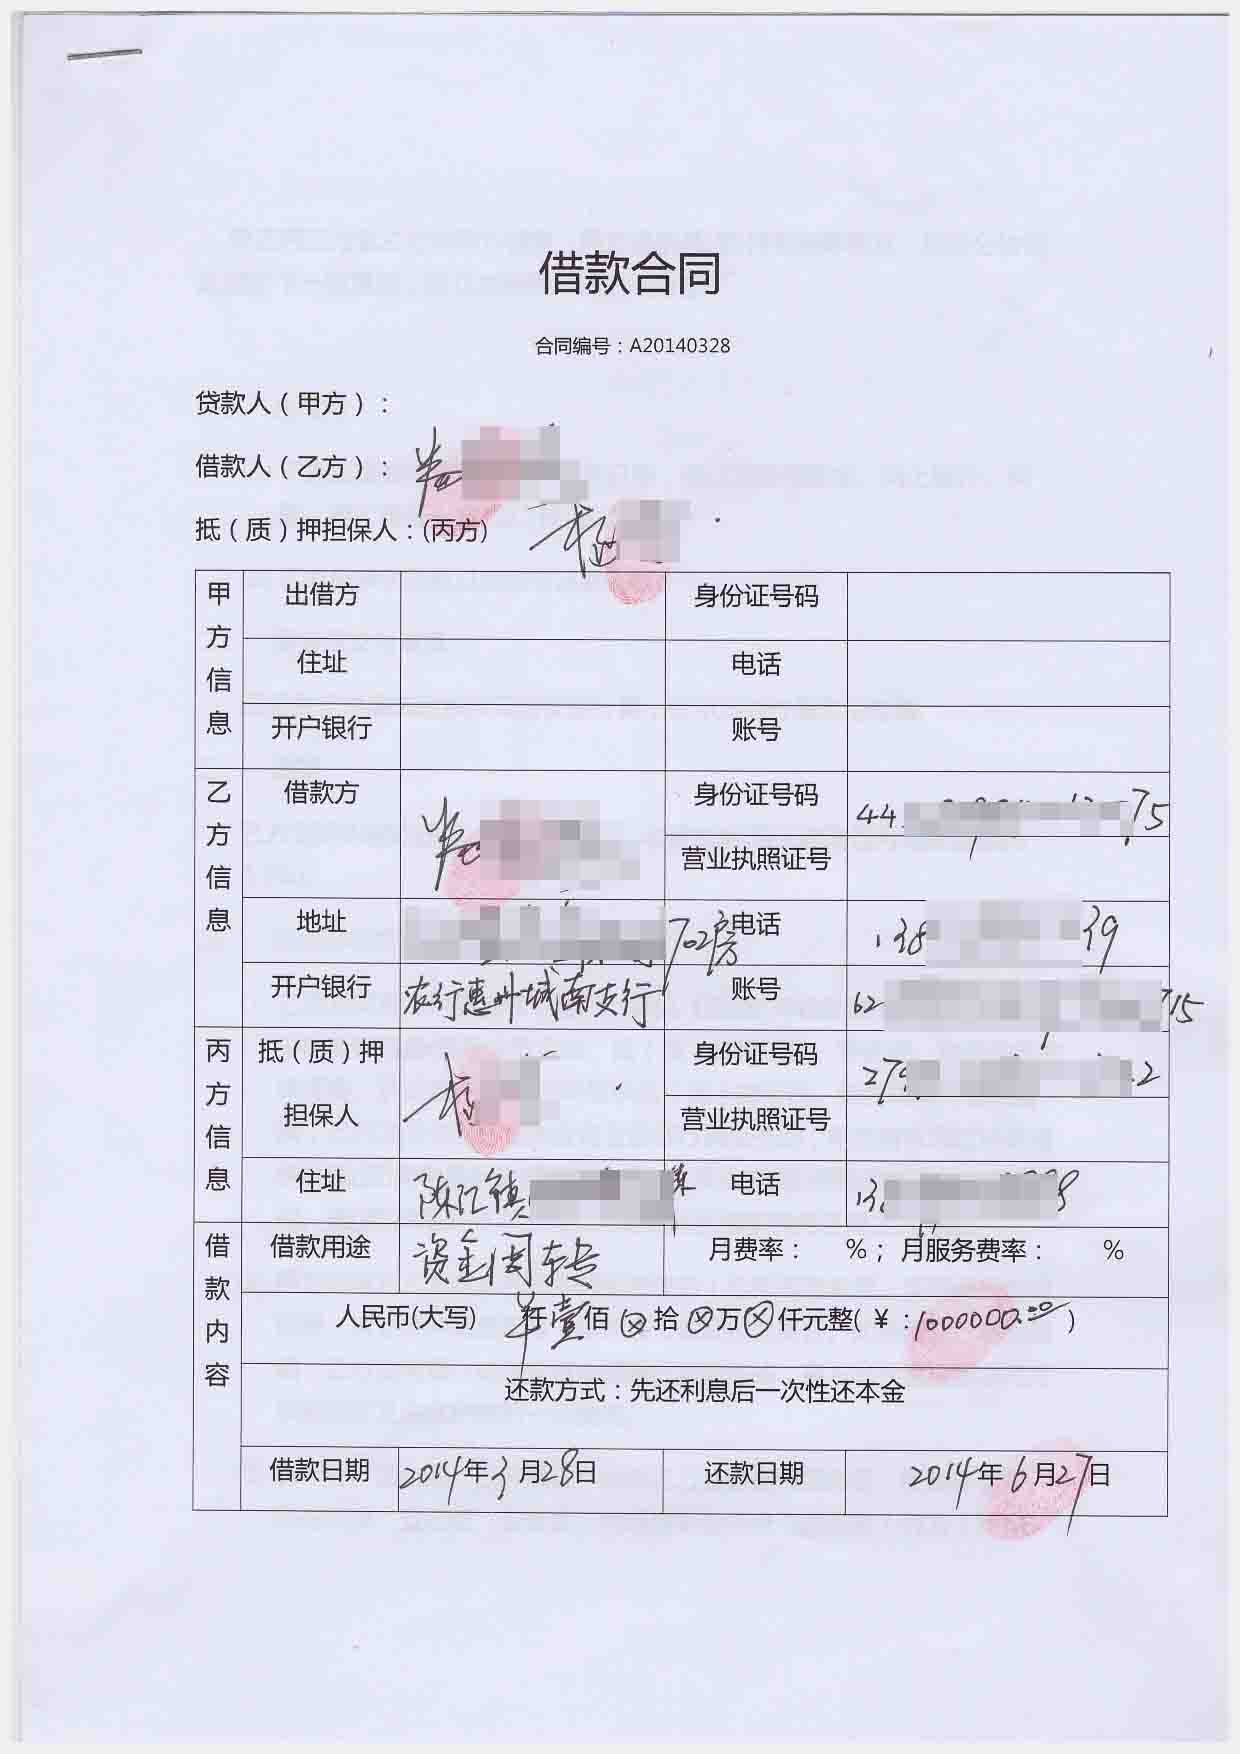 借款合同
合同编号：A20140328
贷款人（甲方）：
借款人（乙方）：
抵（质）押担保人：(丙方)
甲方信息
出借方 身份证号码
住址 电话
开户银行 账号
乙方信息
借款方 身份证号码 44 75
营业执照证号
地址 702房 电话 138 39
开户银行 农行惠州城南支行 账号 62 715
丙方信息
抵（质）押担保人 身份证号码 2
营业执照证号
住址 陈江镇 电话 13 8
借款内容
借款用途 资金周转 月费率： %；月服务费率： %
人民币(大写) 仟壹佰⊗拾⊗万⊗仟元整(￥:1000000.00)
还款方式：先还利息后一次性还本金
借款日期 2014年3月28日 还款日期 2014年6月27日